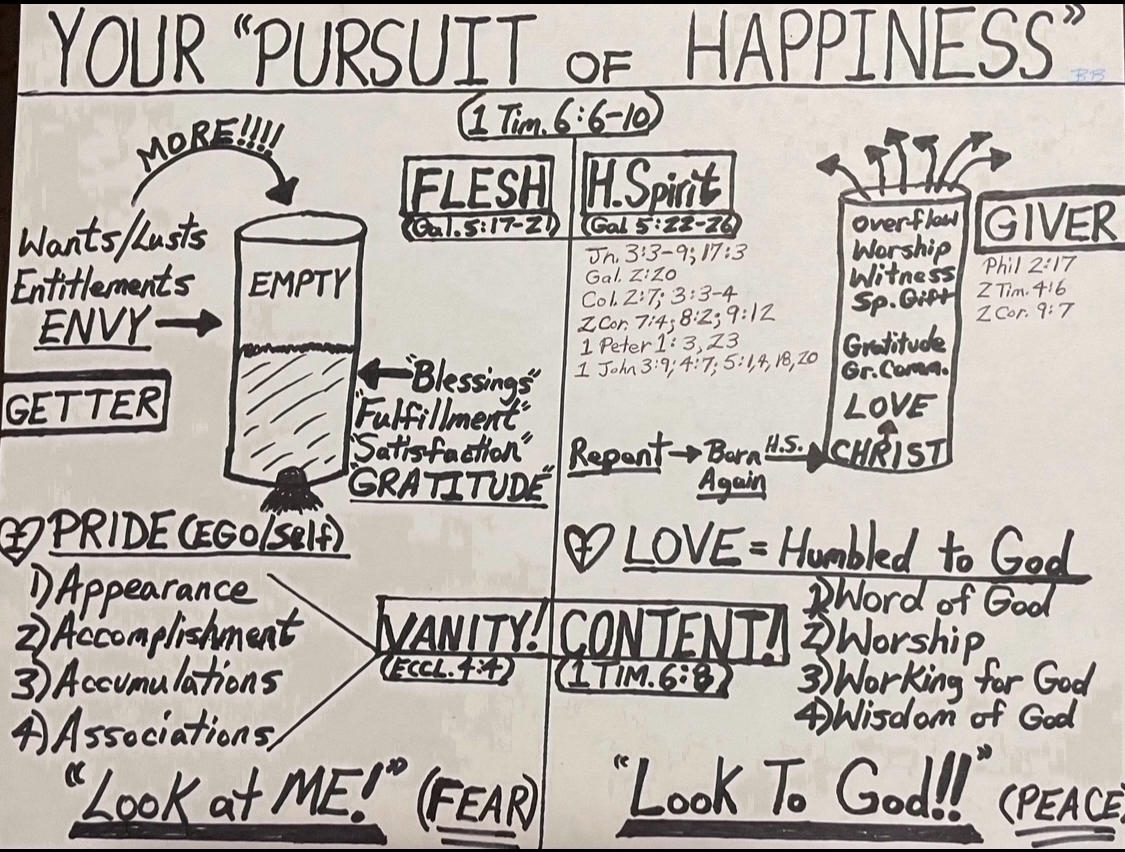 YOUR "PURSUIT OF HAPPINESS"
BB
(1 Tim. 6:6-10)
MORE!!!!
Wants/Lusts
Entitlements
ENVY
GETTER
EMPTY
"Blessings"
"Fulfillment"
"Satisfaction"
"GRATITUDE"
FLESH
(Gal. 5:17-21)
PRIDE (EGO/Self)
1) Appearance
2) Accomplishment
3) Accumulations
4) Associations
VANITY!
(ECCL. 4:4)
"Look at ME!" (FEAR)
H. Spirit
(Gal 5:22-26)
Jn. 3:3-9; 17:3
Gal. 2:20
Col. 2:7; 3:3-4
2 Cor. 7:4; 8:2; 9:12
1 Peter 1:3, 23
1 John 3:9; 4:7; 5:1,4,18,20
Repent → Born Again H.S.
overflow
Worship
Witness
Sp. Gift
Gratitude
Gr. Comm.
LOVE
CHRIST
GIVER
Phil 2:17
2 Tim. 4:6
2 Cor. 9:7
LOVE = Humbled to God
CONTENT!
(1 TIM. 6:8)
1) Word of God
2) Worship
3) Working for God
4) Wisdom of God
"Look To God!!" (PEACE)